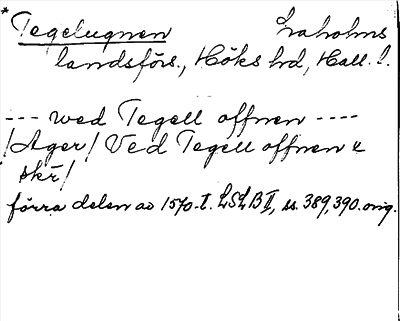 * Tegelugnen Laholms
landsförs., Höks hd, Hall. l.
--- wed Tegell offnen ----
/Ager/ Ved Tegell offnen &
skr/
förra delen av 1570-t. LSLB II, ss. 389, 390. orig.